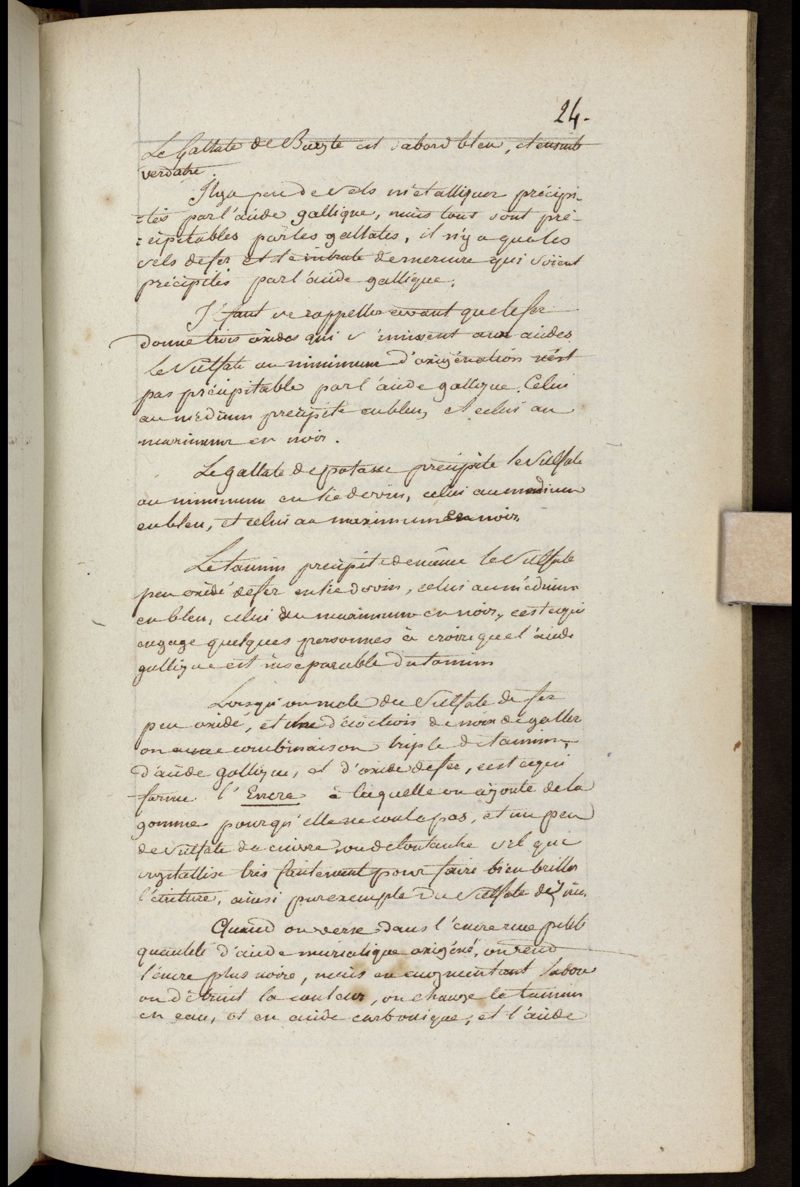 24.
Le Gallate de Baryte est d'abord bleu, et ensuite
verdatre.
Il y a peu de sels métalliques précipi-
-tés par l'acide gallique, mais tous sont pré-
-cipitables par les gallates, il n'y a que les
sels de fer et le nitrate de mercure qui soient
précipités par l'acide gallique.
Il faut se rappeller avant que le fer
donne trois oxides qui s'unissent aux acides
le Sulfate au minimum d'oxigénation n'est
pas précipitable par l'acide gallique. Celui
au médium précipité en bleu, et celui au
maximum en noir.
Le gallate de potasse précipite le Sulfate
au minimum en lie de vin, celui au medium
en bleu, et celui au maximum en noir.
Le tannin précipite de même le Sulfate
peu oxidé de fer en lie de vin, celui au médium
en bleu, celui du maximum en noir, c'est ce qui
engage quelques personnes à croire que l'acide
gallique est inséparable du tannin
Lorsqu'on mele du Sulfate de fer
peu oxidé, et une décoction de noix de galles
on a une combinaison triple de tannin,
d'acide gallique, et d'oxide de fer, c'est ce qui
forme l'Encre à laquelle on ajoute de la
gomme pour qu'elle ne coule pas, et un peu
de Sulfate de cuivre, ou de tout autre sel qui
crystallise très facilement pour faire bien briller
l'ecriture, ainsi par exemple du Sulfate de Zinc.
Quand on verse dans l'encre une petite
quantité d'acide muriatique oxigéné, on rend
l'encre plus noire, mais en augmentant la dose
on détruit la couleur, on change le tannin
en eau, et en acide carbonique, et l'acide